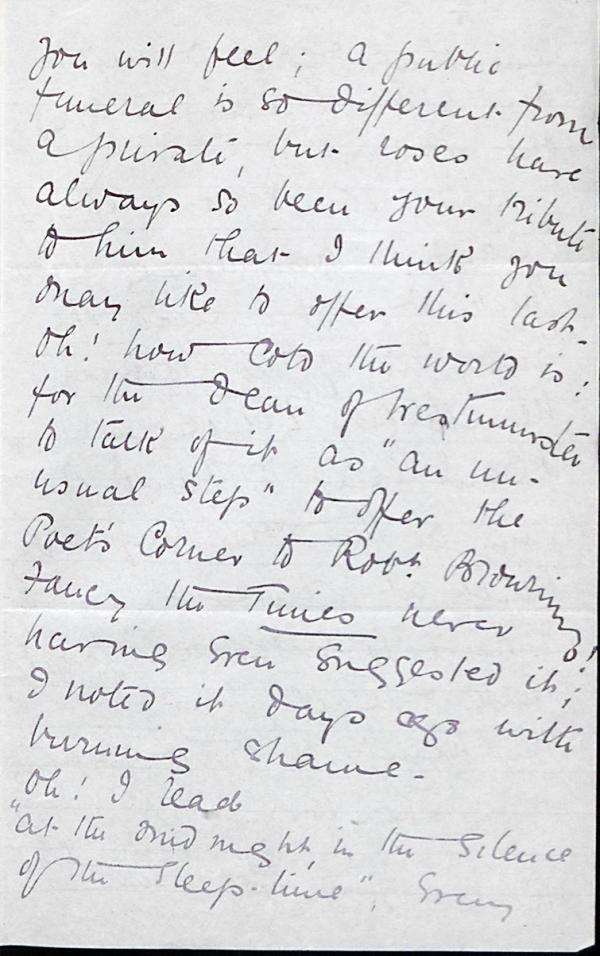 you will feel; a public
funeral is so different from
a private, but roses have
always so been your tribute
to him that I think you
may like to offer this last.
Oh! how cold the world is!
for the Dean of Westminster
to talk of it as "an un-
usual step" to offer the
Poet's Corner to Robt. Browning!
Fancy the Times never
having even suggested it;
I noted it days ago with
burning shame.
Oh! I read
"at the midnight, in the silence
of the sleep-time", every